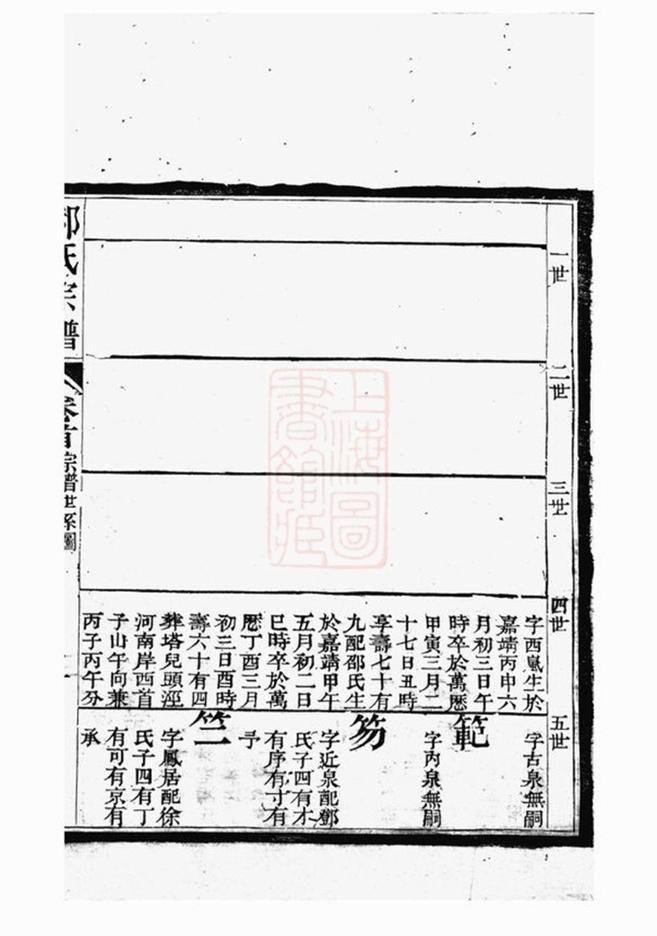 一世
二世
三世
四世
字西鳧生於
嘉靖丙申六
月初三日午
時卒於萬歷
甲寅三月二
十七日丑時
享壽七十有
九配邵氏生
於嘉靖甲午
五月初二日
巳時卒於萬
歷丁酉三月
初三日酉時
壽六十有四
葬塔兒頭涇
河南岸西首
子山午向兼
丙子丙午分
五世
字古泉無嗣
範
字丙泉無嗣
笏
字近泉配鄧
氏子四有木
有序有寸有
予
竺
字鳳居配徐
氏子四有丁
有可有京有
承
氏宗譜
卷首宗譜世系圖
上海圖
書館藏